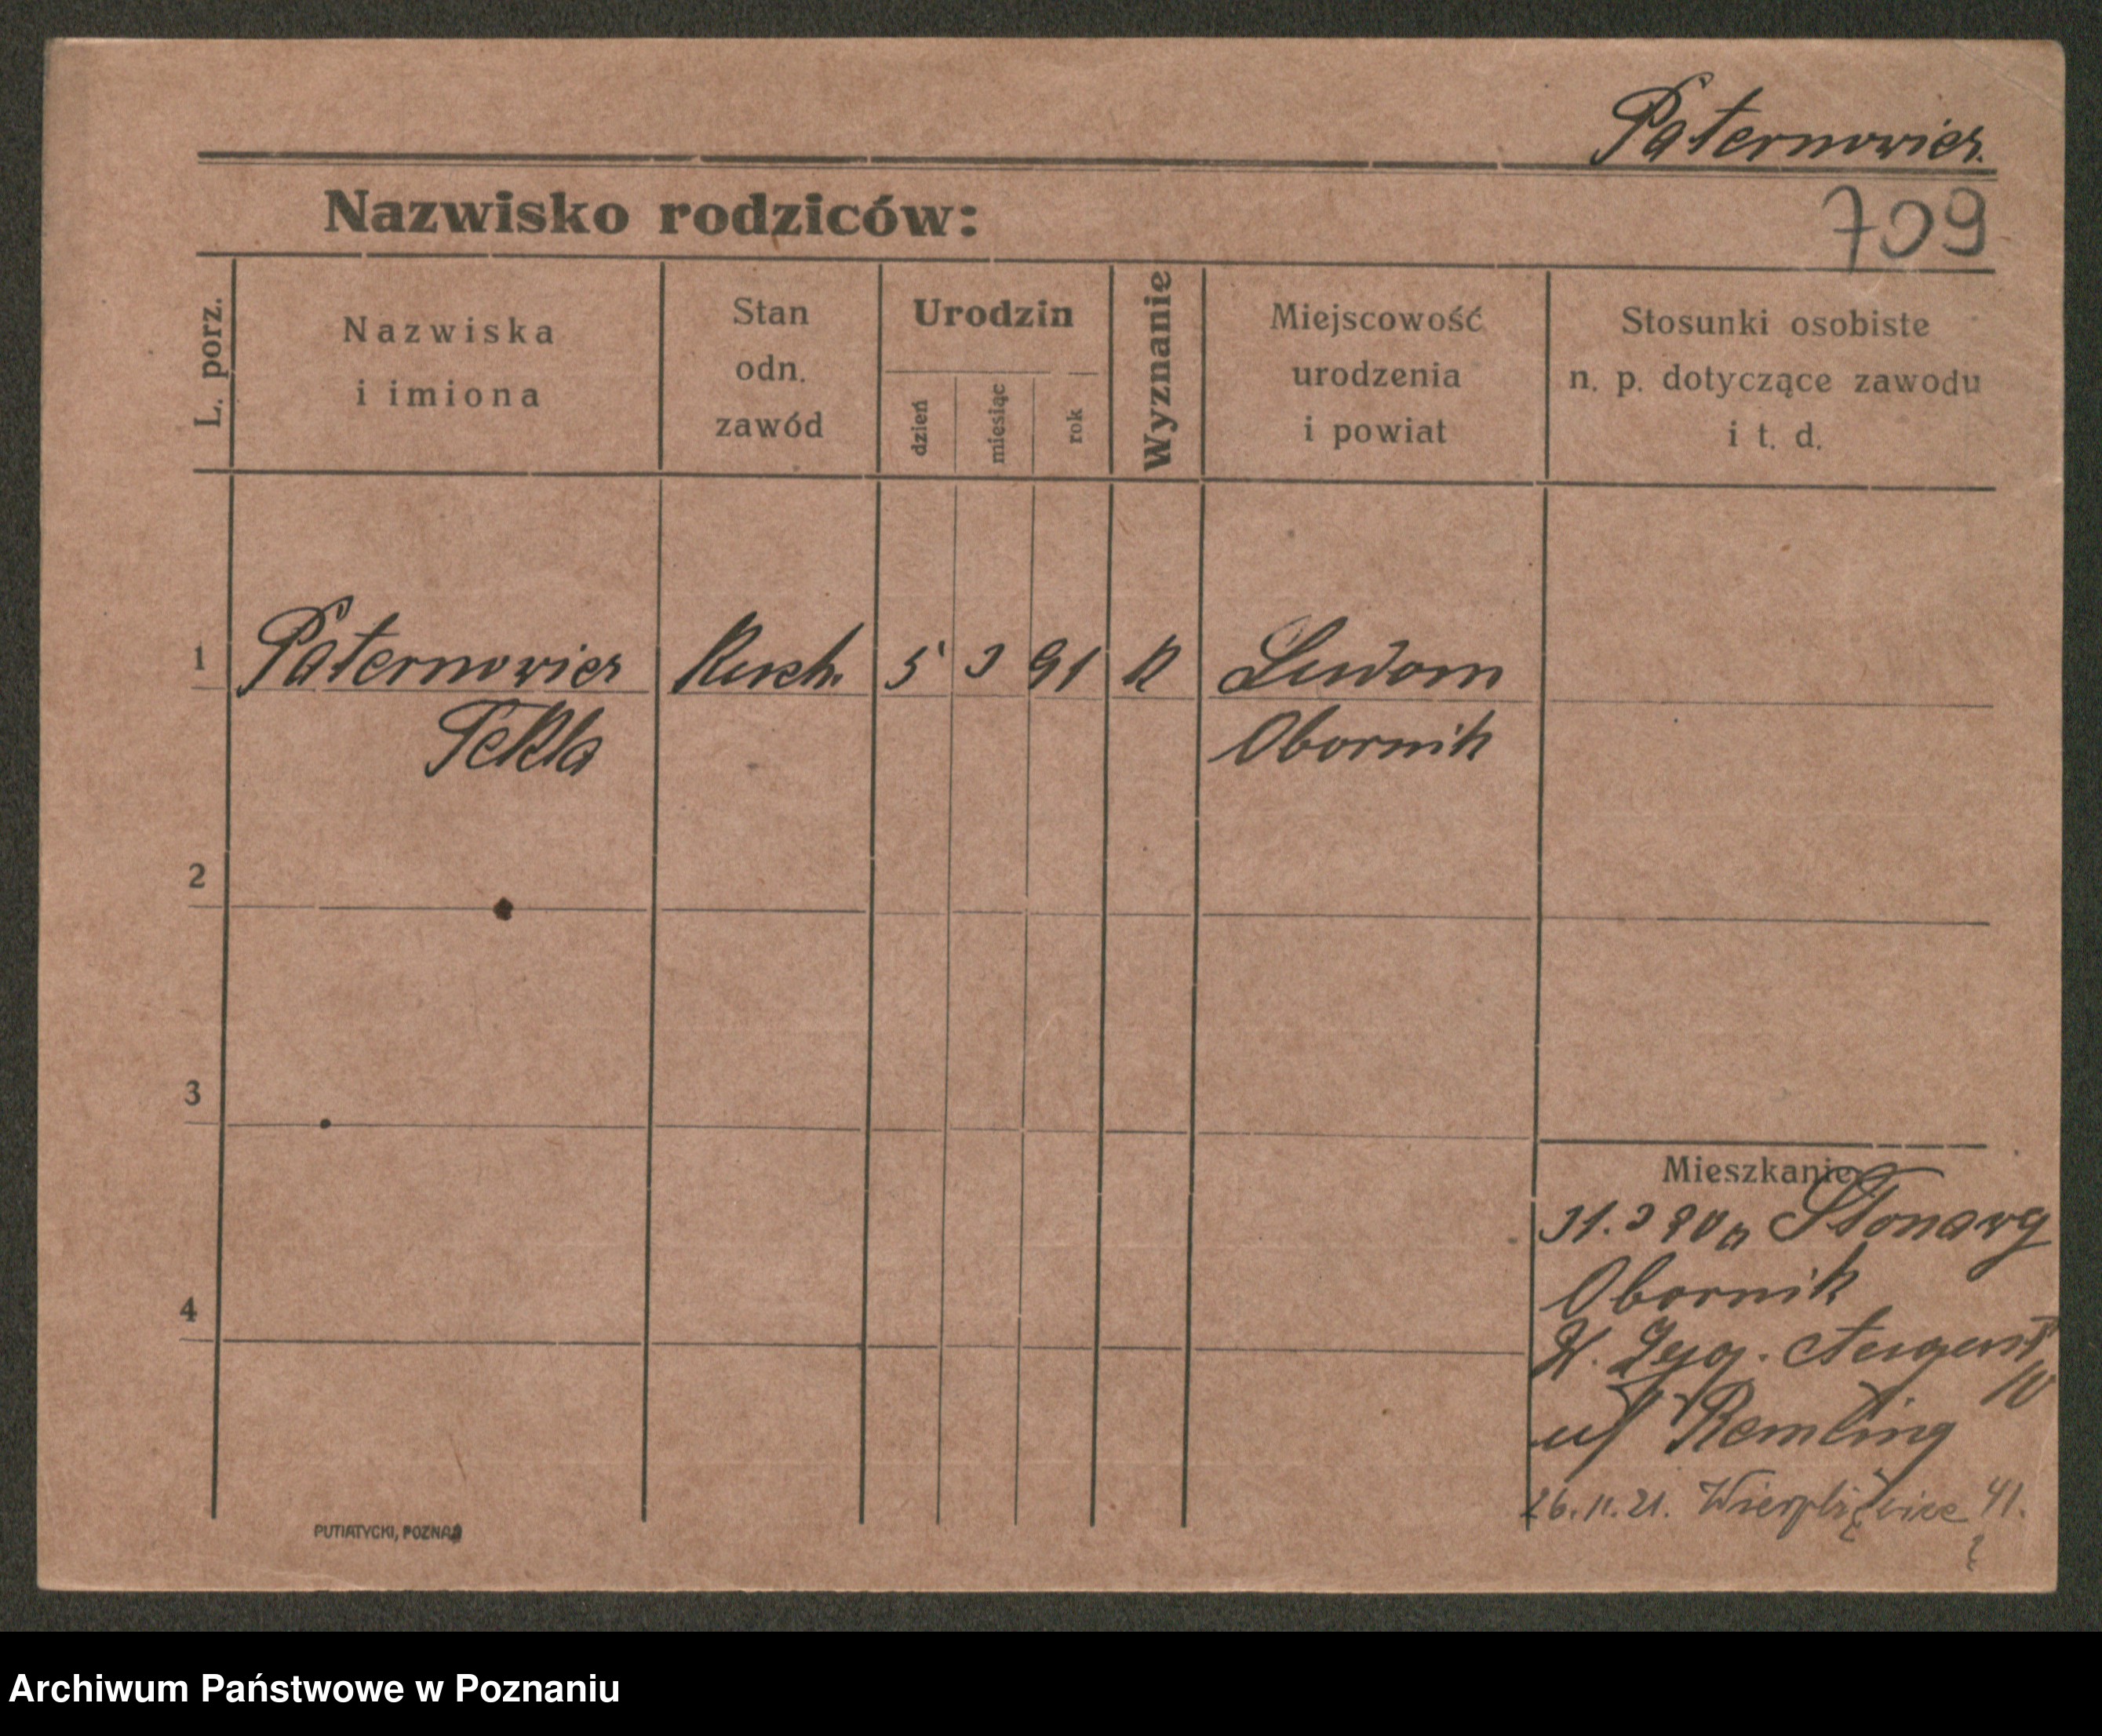 Paternowicz.
Nazwisko rodziców:
709
L. porz.
Nazwiska
i imiona
Stan
odn.
zawód
Urodzin
dzień
miesiąc
rok
Wyznanie
Miejscowość
urodzenia
i powiat
Stosunki osobiste
n. p. dotyczące zawodu
i t. d.
1 Paternowicz Kuch. 5 3 91 K Ludom
Tekla Obornik
2
3
4
Mieszkanie
31.3 Stonawy
Obornik
August
10
Remling
26.11.21. 41.
PUTIATYCKI, POZNAŃ
Archiwum Państwowe w Poznaniu